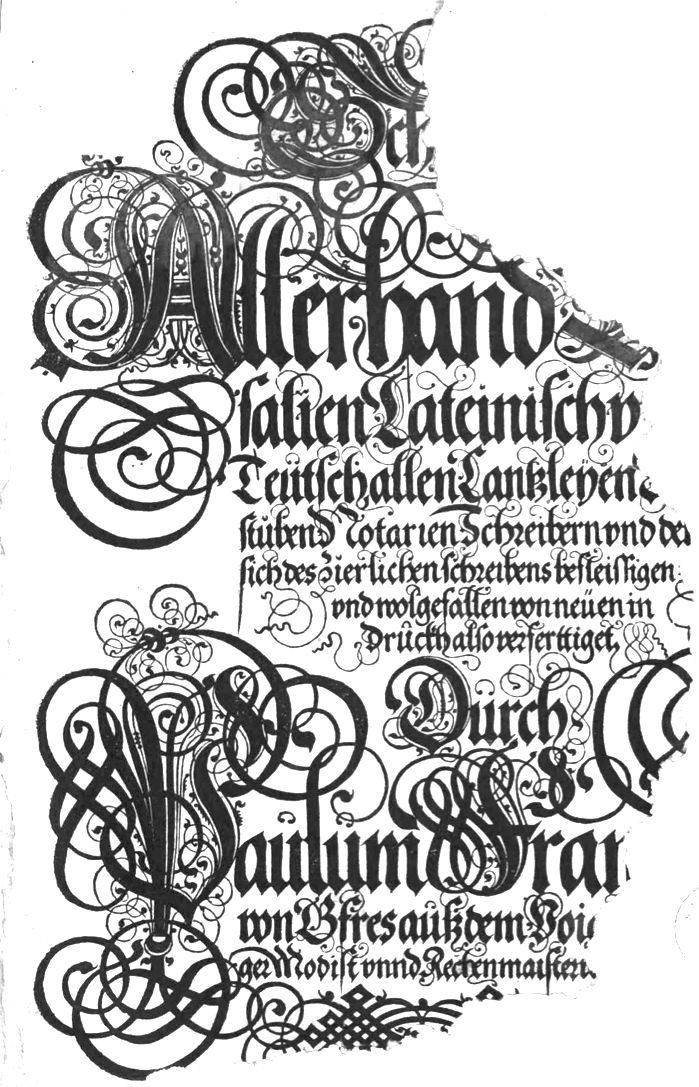 Allerhand
salien Lateinisch v
Teütsch allen Cantzleyen
stüben Notarien Schreibern vnd de
sich des zierlichen schreibens befleissigen
vnd wolgefallen von neüen in
Drückh also verferttiget,
Dürch
Paulum Fran
von Gfres aüß dem Voi
ger Modist vnnd Rechenmaister.